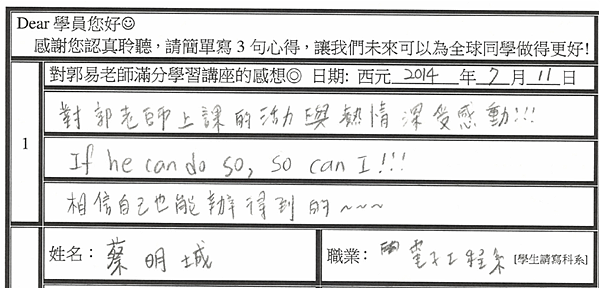 Dear 學員您好☺
感謝您認真聆聽，請簡單寫 3 句心得，讓我們未來可以為全球同學做得更好!
對郭易老師滿分學習講座的感想◎ 日期: 西元 2014 年 7 月 11 日
1
對郭老師上課的活力與熱情深受感動!!!
If he can do so, so can I!!!
相信自己也能辦得到的~~~
姓名： 蔡明城 職業： 電子工程系 [學生請寫科系]